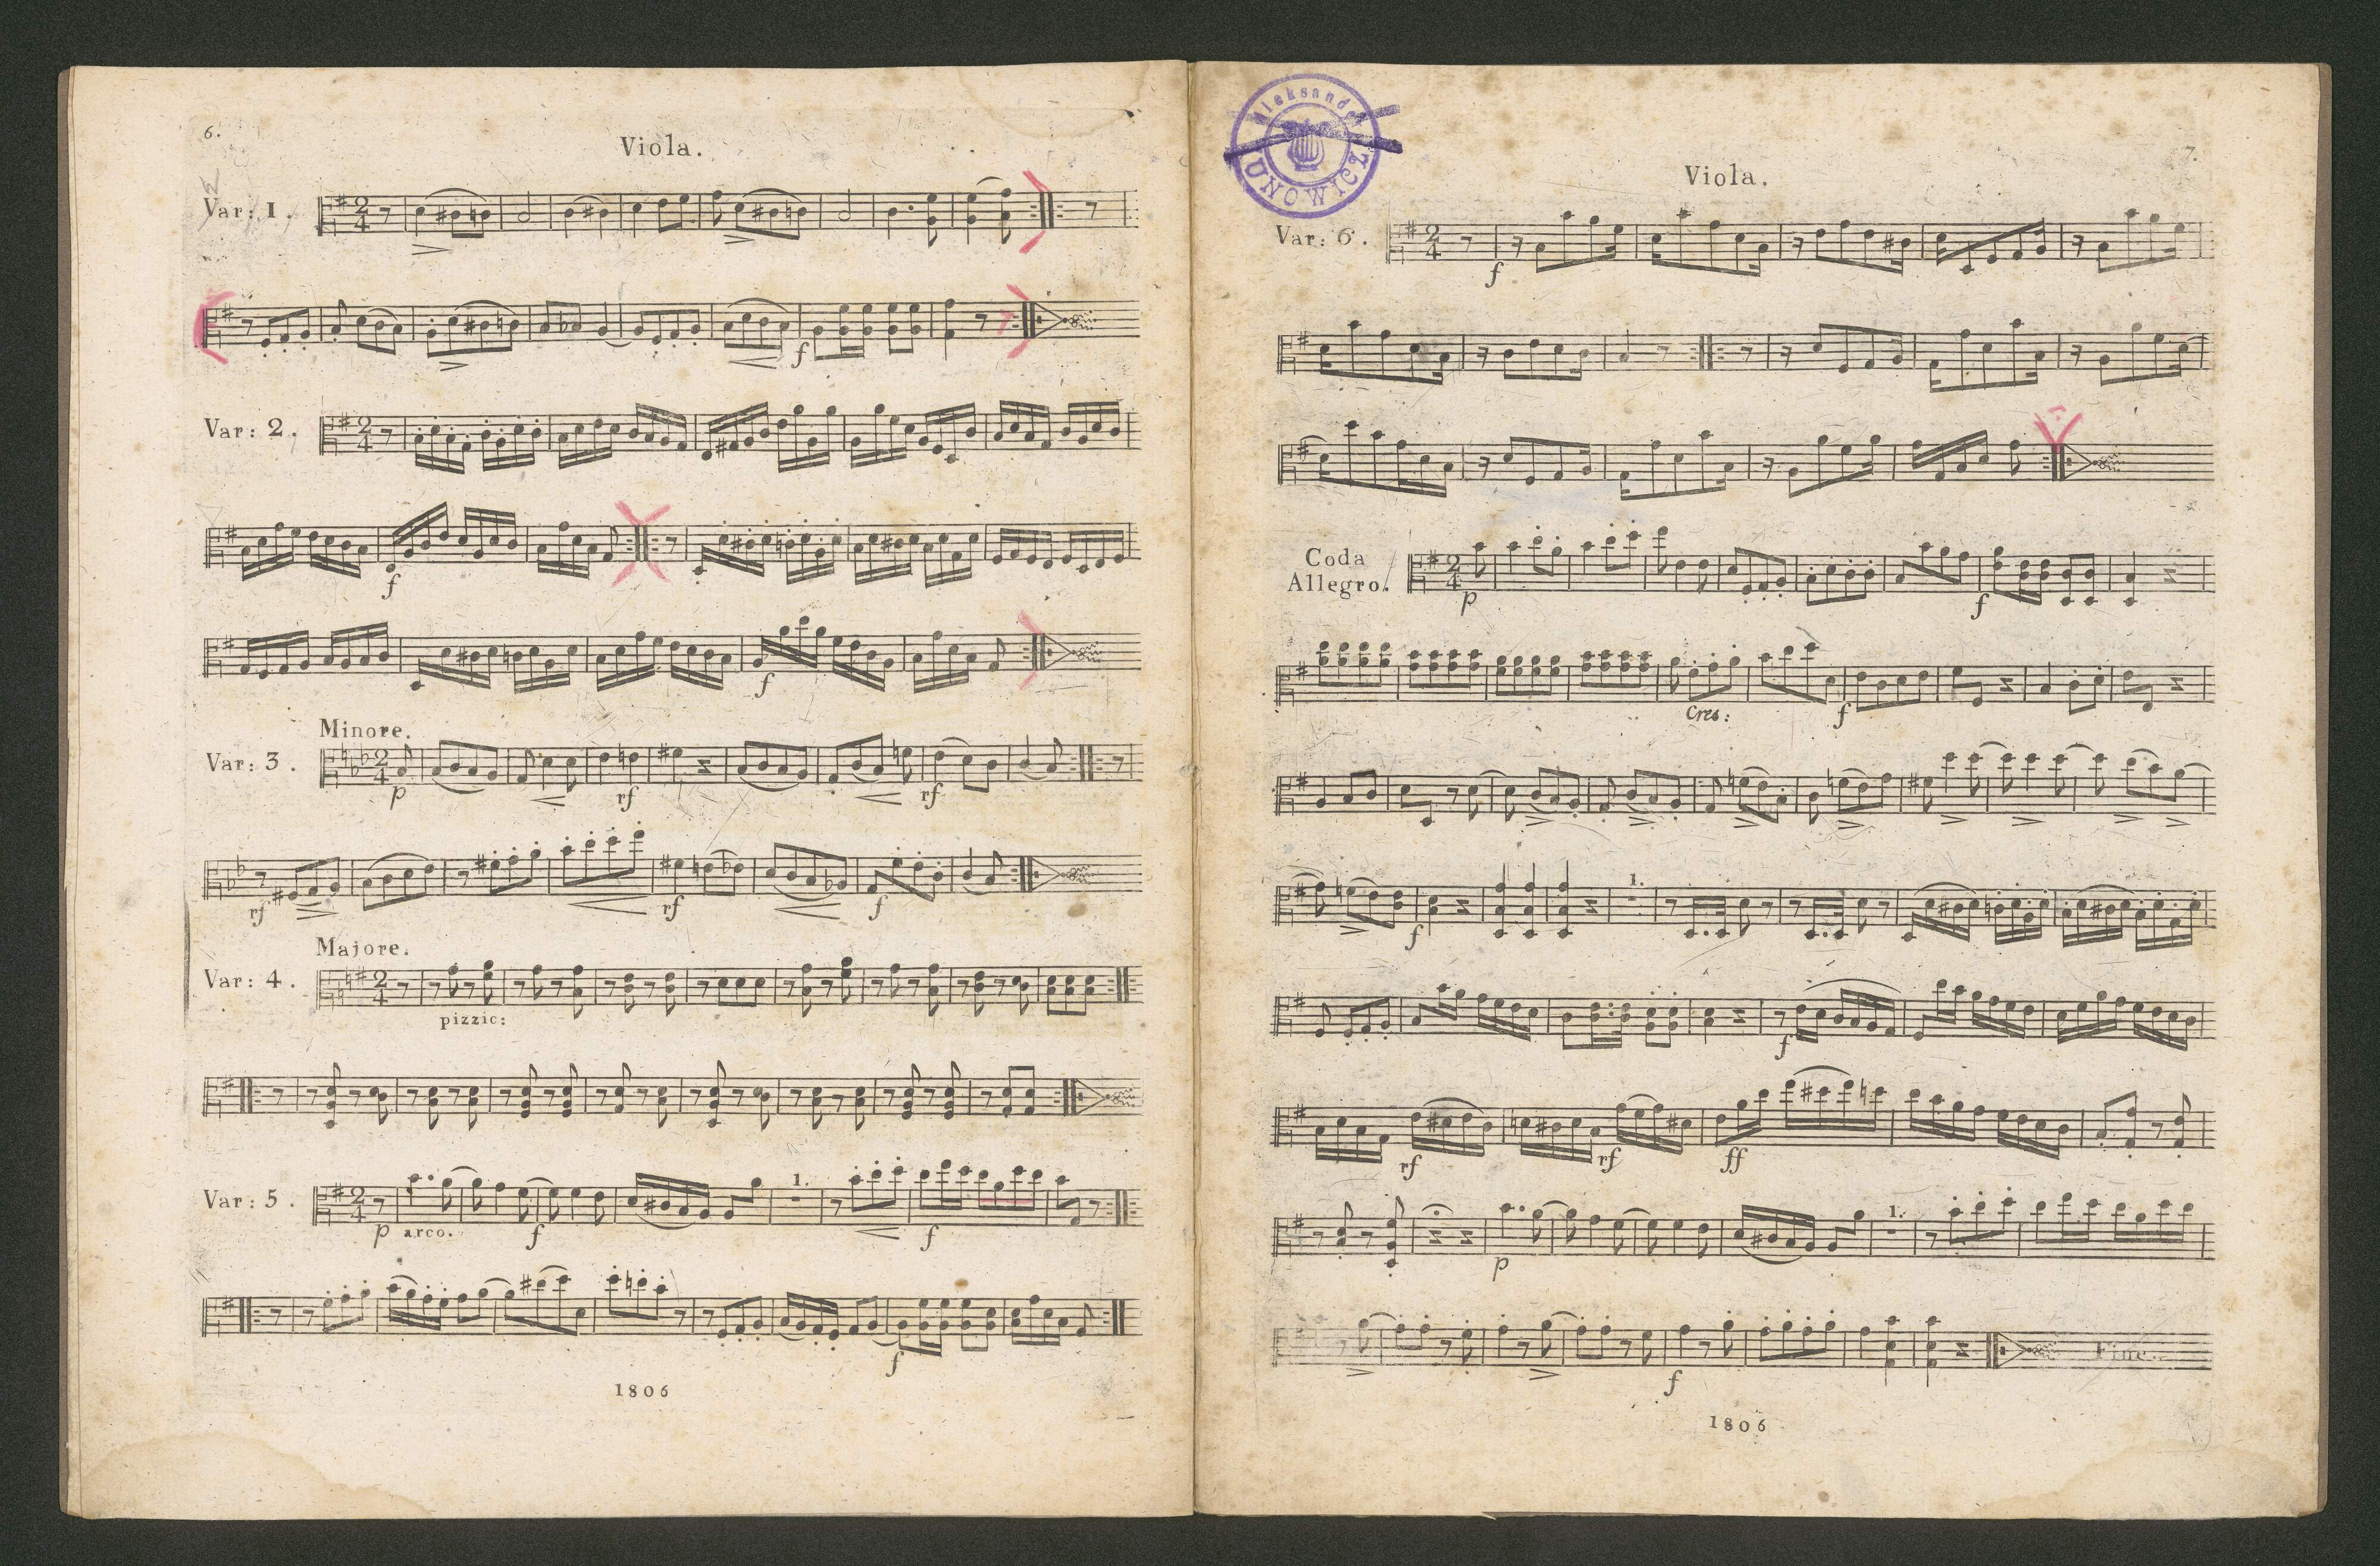 6.
Viola.
Var: 1.
f
Var: 2.
f
f
Minore.
Var: 3.
p rf rf
rf rf f
Majore.
Var: 4.
pizzic:
Var: 5.
1.
p arco. f f
f
1806
Aleksander
UNOWICZ
7.
Viola.
Var: 6.
f
Coda
Allegro.
p f
Cres: f
1.
f
f
rf rf ff
1.
p
Fine.
f
1806